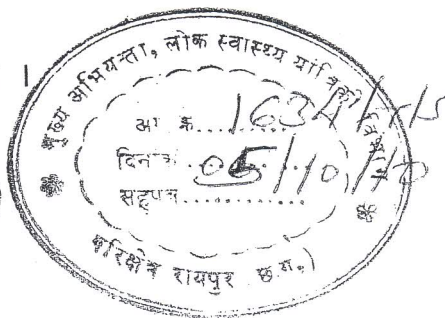 मुख्य अभियन्ता, लोक स्वास्थ्य यांत्रिकी विभाग
आ क्र......
दिनांक 05/10/10
सहपत्र..............
परिक्षेत्र रायपुर छ.ग.)